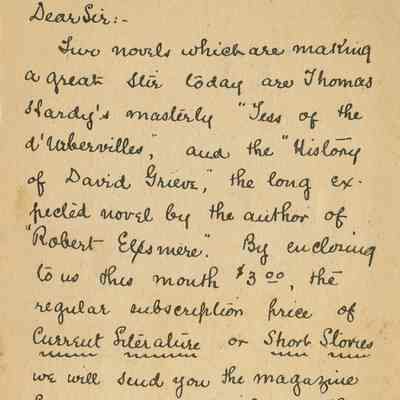 Dear Sir:-
Two novels which are making
a great stir today are Thomas
Hardy's masterly "Tess of the
d'Urbervilles", and the "History
of David Grieve," the long ex-
pected novel by the author of
"Robert Elsmere". By enclosing
to us this month $3.00, the
regular subscription price of
Current Literature or Short Stories
we will send you the magazine